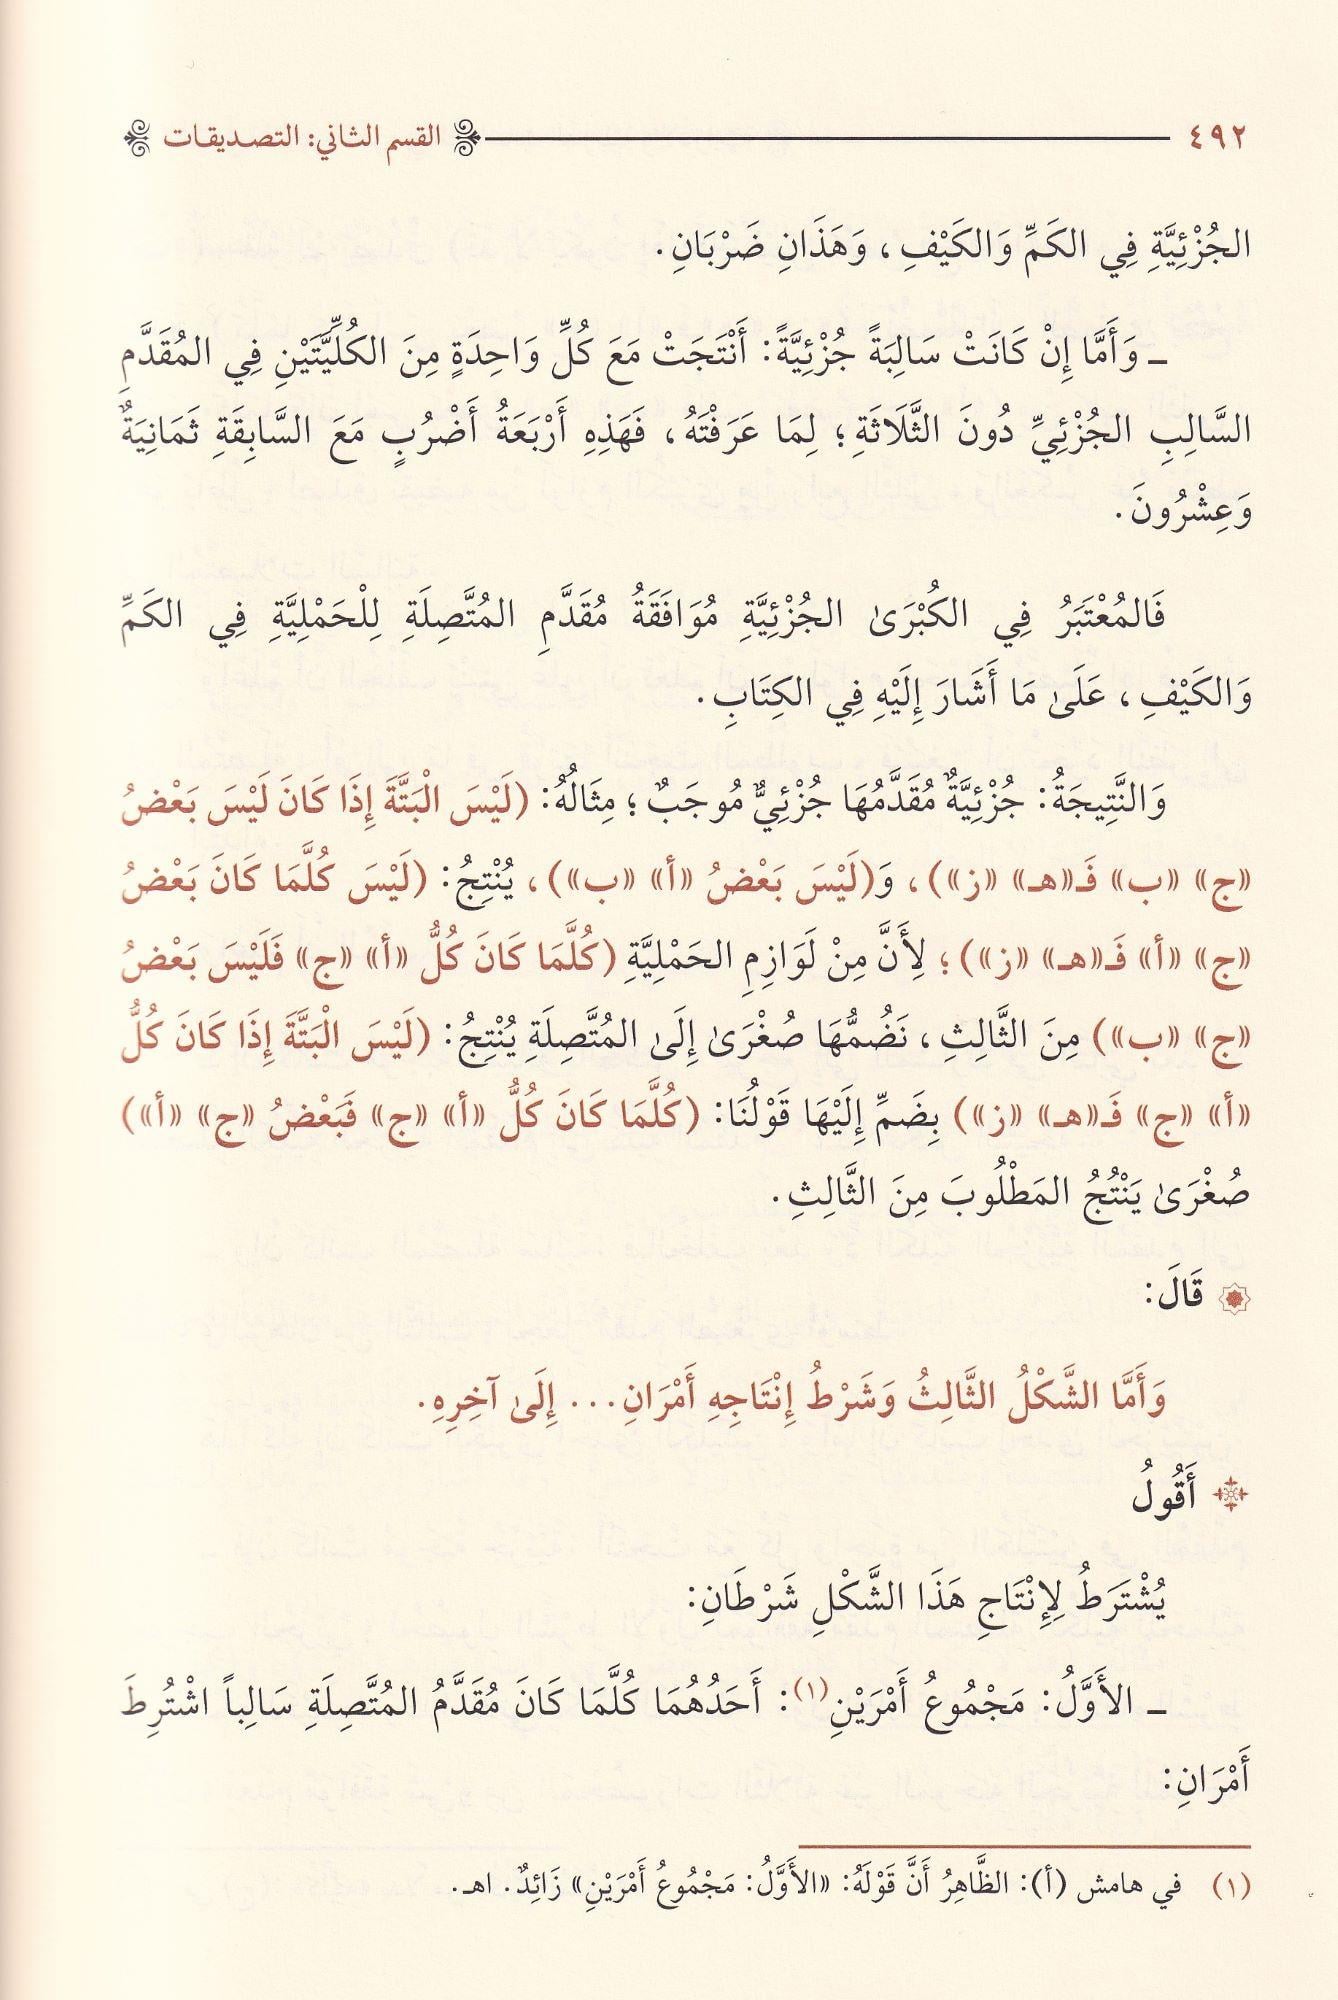 ٤٩٢ القسم الثاني: التصديقات
الجُزْئِيَّةِ فِي الكَمِّ وَالكَيْفِ، وَهَذَانِ ضَرْبَانِ.
ـ وَأَمَّا إِنْ كَانَتْ سَالِبَةً جُزْئِيَّةً: أَنْتَجَتْ مَعَ كُلِّ وَاحِدَةٍ مِنَ الكُلِّيَّتَيْنِ فِي المُقَدَّمِ
السَّالِبِ الجُزْئِيِّ دُونَ الثَّلَاثَةِ؛ لِمَا عَرَفْتَهُ، فَهَذِهِ أَرْبَعَةُ أَضْرُبٍ مَعَ السَّابِقَةِ ثَمَانِيَةٌ
وَعِشْرُونَ.
فَالمُعْتَبَرُ فِي الكُبْرَىٰ الجُزْئِيَّةِ مُوَافَقَةُ مُقَدَّمِ المُتَّصِلَةِ لِلْحَمْلِيَّةِ فِي الكَمِّ
وَالكَيْفِ، عَلَىٰ مَا أَشَارَ إِلَيْهِ فِي الكِتَابِ.
وَالنَّتِيجَةُ: جُزْئِيَّةٌ مُقَدَّمُهَا جُزْئِيٌّ مُوجَبٌ؛ مِثَالُهُ: (لَيْسَ الْبَتَّةَ إِذَا كَانَ لَيْسَ بَعْضُ
«ج» «ب» فَـ«هـ» «ز»)، وَ(لَيْسَ بَعْضُ «أ» «ب»)، يُنْتِجُ: (لَيْسَ كُلَّمَا كَانَ بَعْضُ
«ج» «أ» فَـ«هـ» «ز»)؛ لِأَنَّ مِنْ لَوَازِمِ الحَمْلِيَّةِ (كُلَّمَا كَانَ كُلُّ «أ» «ج» فَلَيْسَ بَعْضُ
«ج» «ب») مِنَ الثَّالِثِ، نَضُمُّهَا صُغْرَىٰ إِلَىٰ المُتَّصِلَةِ يُنْتِجُ: (لَيْسَ الْبَتَّةَ إِذَا كَانَ كُلُّ
«أ» «ج» فَـ«هـ» «ز») بِضَمِّ إِلَيْهَا قَوْلُنَا: (كُلَّمَا كَانَ كُلُّ «أ» «ج» فَبَعْضُ «ج» «أ»)
صُغْرَىٰ يَنْتُجُ المَطْلُوبَ مِنَ الثَّالِثِ.
قَالَ:
وَأَمَّا الشَّكْلُ الثَّالِثُ وَشَرْطُ إِنْتَاجِهِ أَمْرَانِ... إِلَىٰ آخِرِهِ.
أَقُولُ
يُشْتَرَطُ لِإِنْتَاجِ هَذَا الشَّكْلِ شَرْطَانِ:
ـ الأَوَّلُ: مَجْمُوعُ أَمْرَيْنِ(١): أَحَدُهُمَا كُلَّمَا كَانَ مُقَدَّمُ المُتَّصِلَةِ سَالِباً اشْتُرِطَ
أَمْرَانِ:
(١) في هامش (أ): الظَّاهِرُ أَنَّ قَوْلَهُ: «الأَوَّلُ: مَجْمُوعُ أَمْرَيْنِ» زَائِدٌ. اهـ.